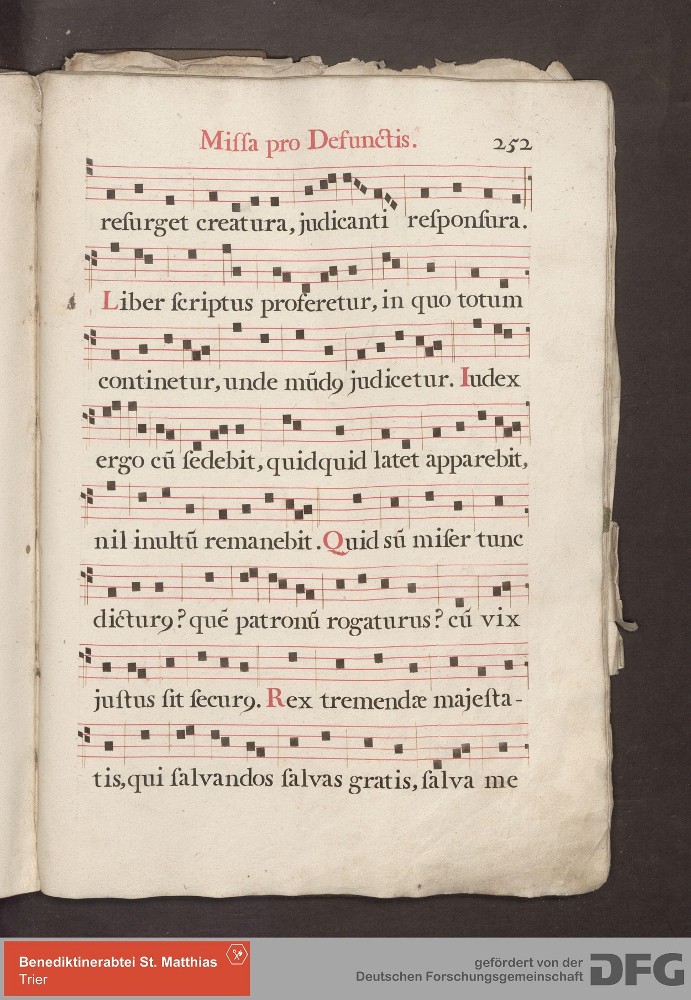 Miſſa pro Defunctis.
252
reſurget creatura, judicanti reſponſura.
Liber ſcriptus proferetur, in quo totum
continetur, unde mũdꝯ judicetur. Iudex
ergo cũ ſedebit, quidquid latet apparebit,
nil inultũ remanebit. Quid sũ miſer tunc
dicturꝯ? quẽ patronũ rogaturus? cũ vix
juſtus ſit ſecurꝯ. Rex tremendæ majeſta-
tis, qui ſalvandos ſalvas gratis, ſalva me
Benediktinerabtei St. Matthias
Trier
gefördert von der
Deutschen Forschungsgemeinschaft
DFG